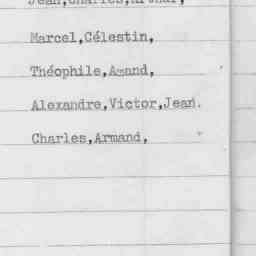 Jean,Charles,Arthur,
Marcel,Célestin,
Théophile,Amand,
Alexandre,Victor,Jean.
Charles,Armand,